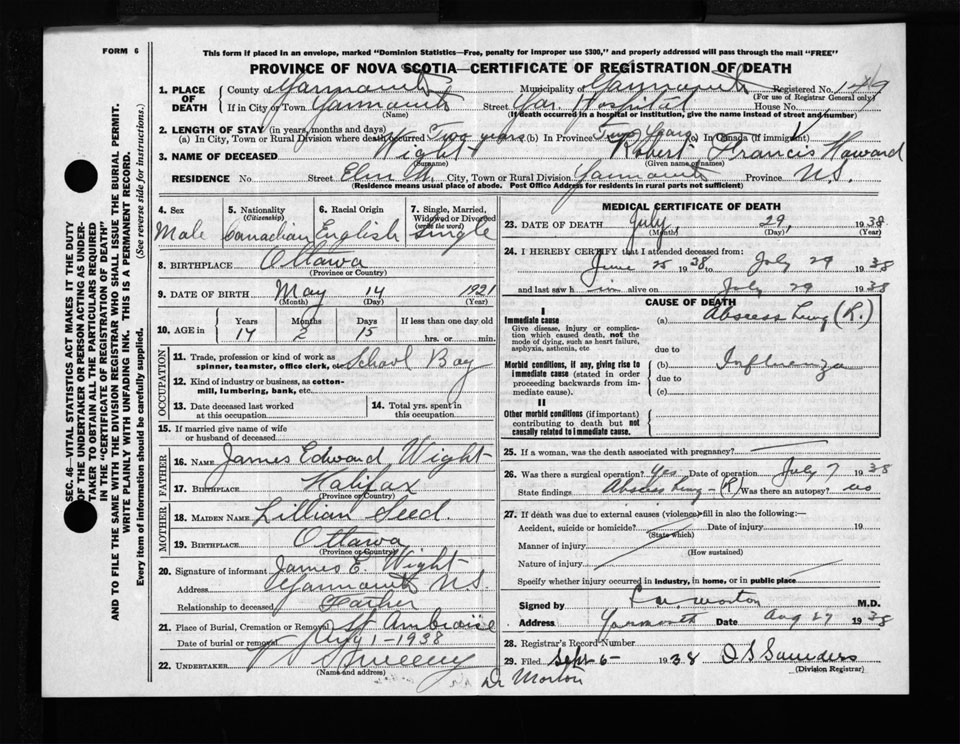 FORM 6
This form if placed in an envelope, marked "Dominion Statistics—Free, penalty for improper use $300," and properly addressed will pass through the mail "FREE"
PROVINCE OF NOVA SCOTIA—CERTIFICATE OF REGISTRATION OF DEATH
SEC. 46—VITAL STATISTICS ACT MAKES IT THE DUTY
OF THE UNDERTAKER OR PERSON ACTING AS UNDER-
TAKER TO OBTAIN ALL THE PARTICULARS REQUIRED
IN THE "CERTIFICATE OF REGISTRATION OF DEATH"
AND TO FILE THE SAME WITH THE DIVISION REGISTRAR WHO SHALL ISSUE THE BURIAL PERMIT.
WRITE PLAINLY WITH UNFADING INK. THIS IS A PERMANENT RECORD.
Every item of information should be carefully supplied. (See reverse side for instructions.)
1. PLACE OF DEATH
County of Yarmouth Municipality of Yarmouth Registered No. 149
(For use of Registrar General only)
If in City or Town Yarmouth Street Yar. Hospital House No.
(Name) (If death occurred in a hospital or institution, give the name instead of street and No.)
2. LENGTH OF STAY (in years, months and days)
(a) In City, Town or Rural Division where death occurred Two years (b) In Province Two Years (c) In Canada (if immigrant)
3. NAME OF DECEASED Wight Robert Francis Howard
(Surname) (Given name or names)
RESIDENCE No. Street Elm St. City, Town or Rural Division Yarmouth Province N.S.
(Residence means usual place of abode. Post Office Address for residents in rural parts not sufficient)
4. Sex
Male
5. Nationality
(Citizenship)
Canadian
6. Racial Origin
English
7. Single, Married,
Widowed or Divorced
(write the word)
Single
8. BIRTHPLACE Ottawa
(Province or Country)
9. DATE OF BIRTH May 14 1921
(Month) (Day) (Year)
10. AGE in
Years Months Days If less than one day old
17 2 15 hrs. or min.
OCCUPATION
11. Trade, profession or kind of work as
spinner, teamster, office clerk, etc. School Boy
12. Kind of industry or business, as cotton-
mill, lumbering, bank, etc.
13. Date deceased last worked
at this occupation
14. Total yrs. spent in
this occupation
15. If married give name of wife
or husband of deceased
FATHER
16. NAME James Edward Wight
17. BIRTHPLACE Halifax
(Province or Country)
MOTHER
18. MAIDEN NAME Lillian Seed.
19. BIRTHPLACE Ottawa
(Province or Country)
20. Signature of informant James E. Wight
Address Yarmouth N.S.
Relationship to deceased Father
21. Place of Burial, Cremation or Removal St Ambroise
Date of burial or removal Aug 1-1938
22. UNDERTAKER Sweeny
(Name and address)
MEDICAL CERTIFICATE OF DEATH
23. DATE OF DEATH July 29, 1938
(Month) (Day) (Year)
24. I HEREBY CERTIFY that I attended deceased from:
June 25 1938 to July 29 1938
and last saw h im alive on July 29 1938
CAUSE OF DEATH
I
Immediate cause
Give disease, injury or complica-
tion which caused death, not the
mode of dying, such as heart failure,
asphyxia, asthenia, etc
(a) Abscess Lung (R.)
due to
Morbid conditions, if any, giving rise to
immediate cause (stated in order
proceeding backwards from im-
mediate cause).
(b) Influenza
due to
(c)
II
Other morbid conditions (if important)
contributing to death but not
causally related to immediate cause.
25. If a woman, was the death associated with pregnancy?
26. Was there a surgical operation? Yes Date of operation July 7 1938
State findings Abscess Lung - (R) Was there an autopsy? no
27. If death was due to external causes (violence) fill in also the following:—
Accident, suicide or homicide? Date of injury 19
(State which)
Manner of injury
(How sustained)
Nature of injury
Specify whether injury occurred in industry, in home, or in public place
Signed by Morton M.D.
Address Yarmouth Date Aug 27 1938
28. Registrar's Record Number
29. Filed Sept 6- 1938 Saunders
(Division Registrar)
Dr Morton